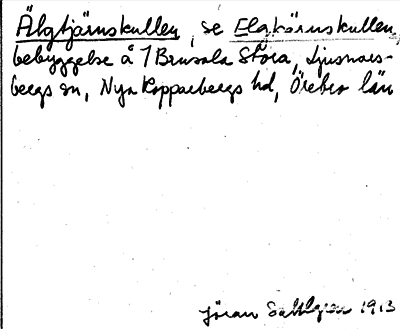 Älgtjärnskullen, se Elgkärnskullen,
bebyggelse å 1 Brunsala Stora, Ljusnars-
bergs sn, Nya Kopparbergs hd, Örebro län
Jöran Sahlgren 1913